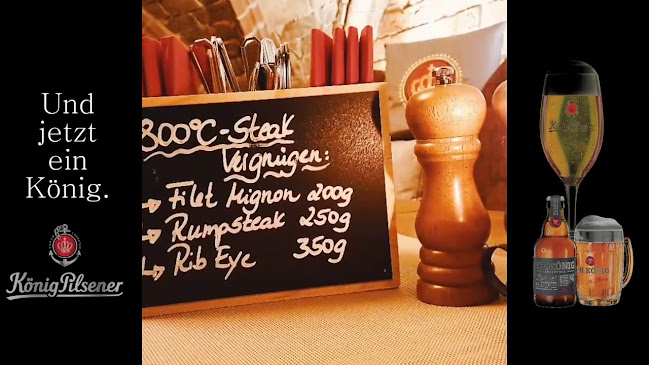 Und
jetzt
ein
König.
König Pilsener
800°C-Steak
Vergnügen:
Filet Mignon 200g
Rumpsteak 250g
Rib Eye 350g